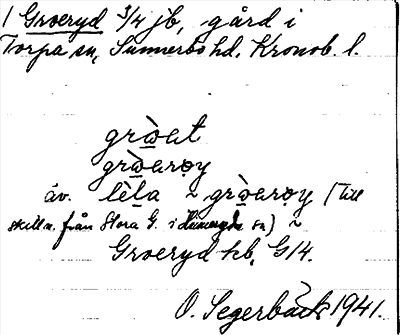 1 Groeryd 3/4 jb, gård i
Torpa sn, Sunnerbo hd, Kronob. l.
grẁat
grẁarọy
äv. lèta ~ grẁarọy (till
skilln. från Stora G. i sn) ~
Groeryd hb, G14.
O. Segerbäck 1941.